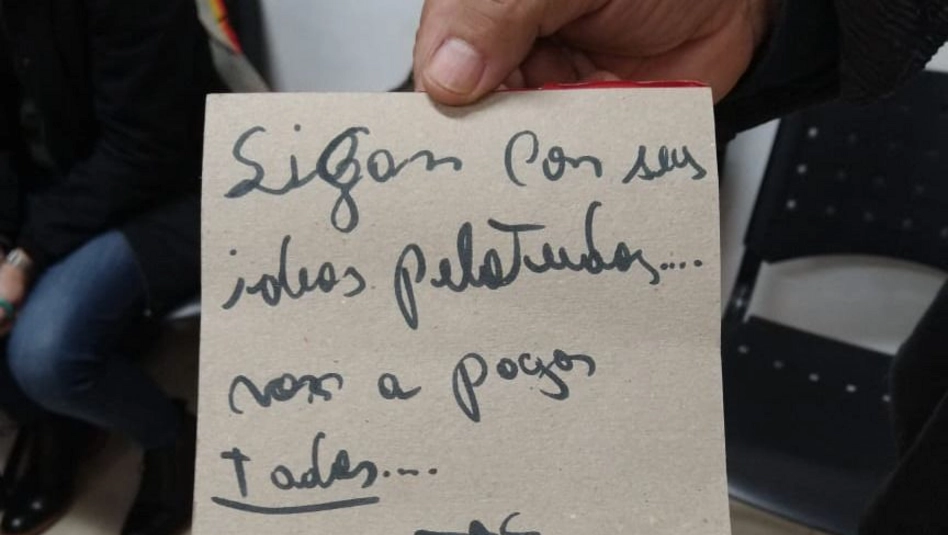 Sigan con sus
ideas pelotudas....
van a pagar
todos....